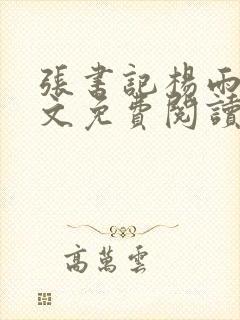 張書記楊雨
文免費閱讀
高萬雲